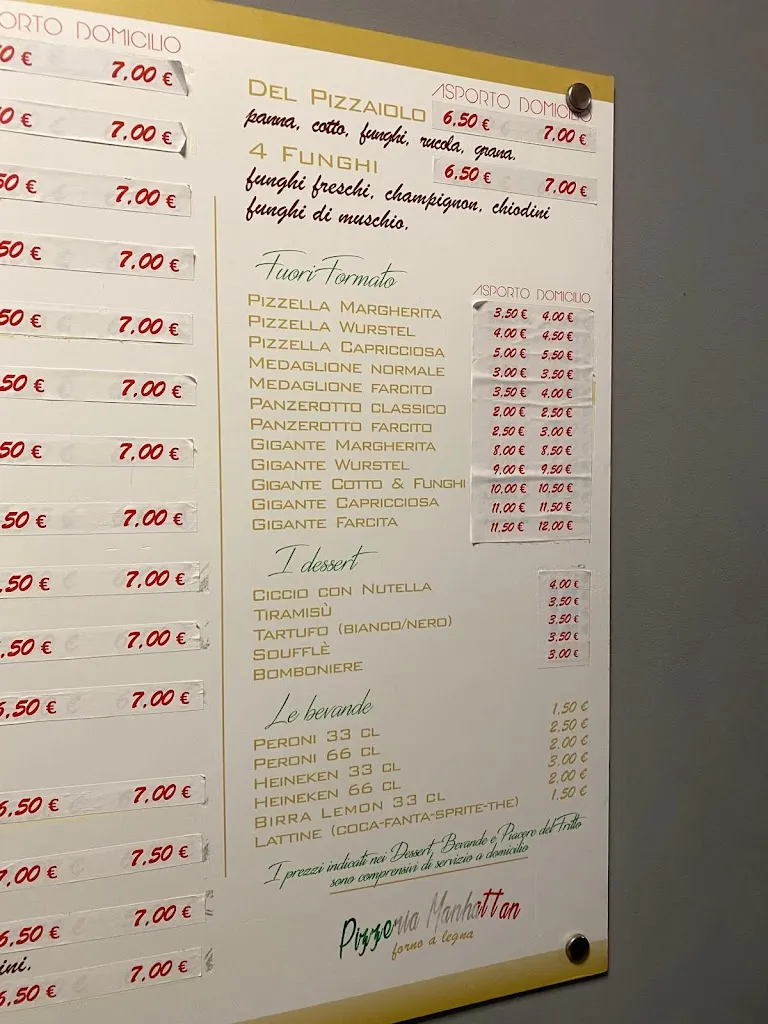 ASPORTO DOMICILIO
7,00 €
7,00 €
,50 € 7,00 €
,50 € 7,00 €
,50 € 7,00 €
,50 € 7,00 €
,50 € 7,00 €
,50 € 7,00 €
,50 € 7,00 €
,50 € 7,00 €
6,50 € 7,00 €
6,50 € 7,00 €
7,00 € 7,50 €
6,50 € 7,00 €
ini.
6,50 € 7,00 €
ASPORTO DOMICILIO
DEL PIZZAIOLO 6,50 € 7,00 €
panna, cotto, funghi, rucola, grana.
4 FUNGHI 6,50 € 7,00 €
funghi freschi, champignon, chiodini
funghi di muschio.
Fuori Formato
ASPORTO DOMICILIO
PIZZELLA MARGHERITA 3,50 € 4,00 €
PIZZELLA WURSTEL 4,00 € 4,50 €
PIZZELLA CAPRICCIOSA 5,00 € 5,50 €
MEDAGLIONE NORMALE 3,00 € 3,50 €
MEDAGLIONE FARCITO 3,50 € 4,00 €
PANZEROTTO CLASSICO 2,00 € 2,50 €
PANZEROTTO FARCITO 2,50 € 3,00 €
GIGANTE MARGHERITA 8,00 € 8,50 €
GIGANTE WURSTEL 9,00 € 9,50 €
GIGANTE COTTO & FUNGHI 10,00 € 10,50 €
GIGANTE CAPRICCIOSA 11,00 € 11,50 €
GIGANTE FARCITA 11,50 € 12,00 €
I dessert
CICCIO CON NUTELLA 4,00 €
TIRAMISÙ 3,50 €
TARTUFO (BIANCO/NERO) 3,50 €
SOUFFLÈ 3,50 €
BOMBONIERE 3,00 €
Le bevande
PERONI 33 CL 1,50 €
PERONI 66 CL 2,50 €
HEINEKEN 33 CL 2,00 €
HEINEKEN 66 CL 3,00 €
BIRRA LEMON 33 CL 2,00 €
LATTINE (COCA-FANTA-SPRITE-THE) 1,50 €
I prezzi indicati nei Dessert, Bevande e Piacere del Fritto
sono comprensivi di servizio a domicilio
Pizzeria Manhattan
forno a legna